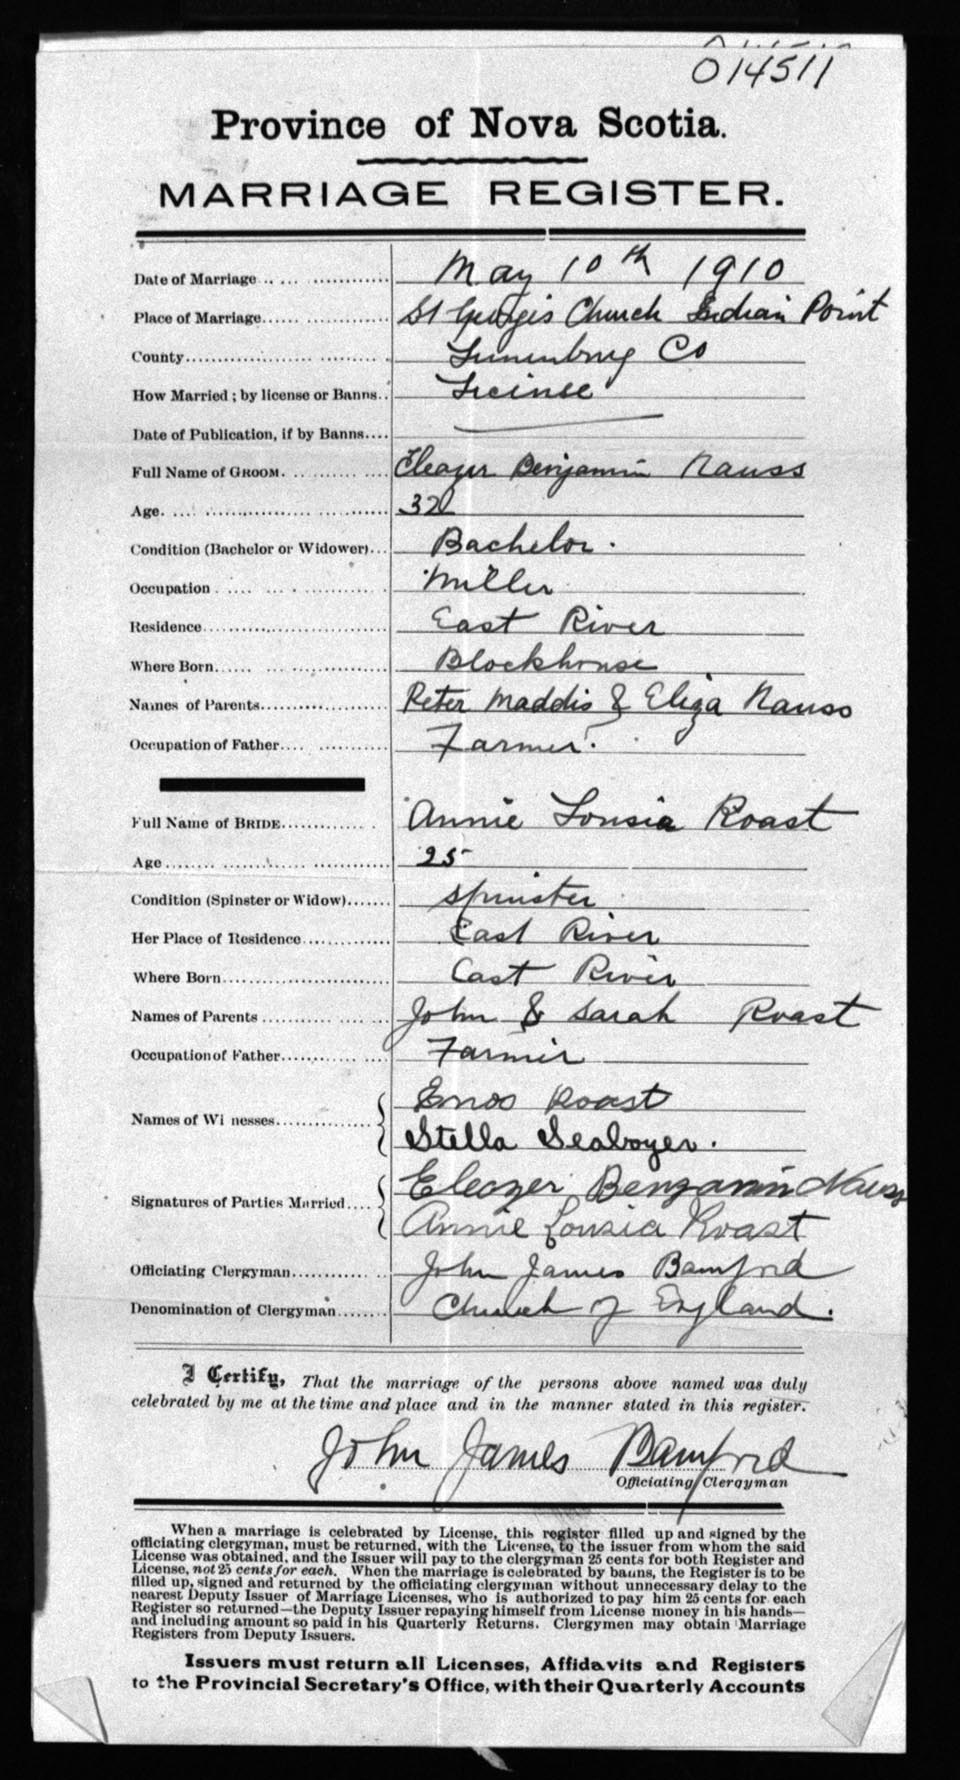 014511
Province of Nova Scotia.
MARRIAGE REGISTER.
Date of Marriage May 10th 1910
Place of Marriage St Georges Church Indian Point
County Lunenburg Co
How Married ; by license or Banns License
Date of Publication, if by Banns
Full Name of GROOM Eleazer Benjamin Nauss
Age 32
Condition (Bachelor or Widower) Bachelor.
Occupation Miller
Residence East River
Where Born Blockhouse
Names of Parents Peter Maddis & Eliza Nauss
Occupation of Father Farmer.
Full Name of BRIDE Annie Lousia Roast
Age 25
Condition (Spinster or Widow) Spinster
Her Place of Residence East River
Where Born East River
Names of Parents John & Sarah Roast
Occupation of Father Farmer
Names of Wi nesses Enos Roast
Stella Seaboyer.
Signatures of Parties Married Eleazer Benjamin Nauss
Annie Lousia Roast
Officiating Clergyman John James Bamford
Denomination of Clergyman Church of England.
I Certify, That the marriage of the persons above named was duly
celebrated by me at the time and place and in the manner stated in this register.
John James Bamford
Officiating Clergyman
When a marriage is celebrated by License, this register filled up and signed by the
officiating clergyman, must be returned, with the License, to the issuer from whom the said
License was obtained, and the Issuer will pay to the clergyman 25 cents for both Register and
License, not 25 cents for each. When the marriage is celebrated by banns, the Register is to be
filled up, signed and returned by the officiating clergyman without unnecessary delay to the
nearest Deputy Issuer of Marriage Licenses, who is authorized to pay him 25 cents for each
Register so returned—the Deputy Issuer repaying himself from License money in his hands—
and including amount so paid in his Quarterly Returns. Clergymen may obtain Marriage
Registers from Deputy Issuers.
Issuers must return all Licenses, Affidavits and Registers
to the Provincial Secretary's Office, with their Quarterly Accounts